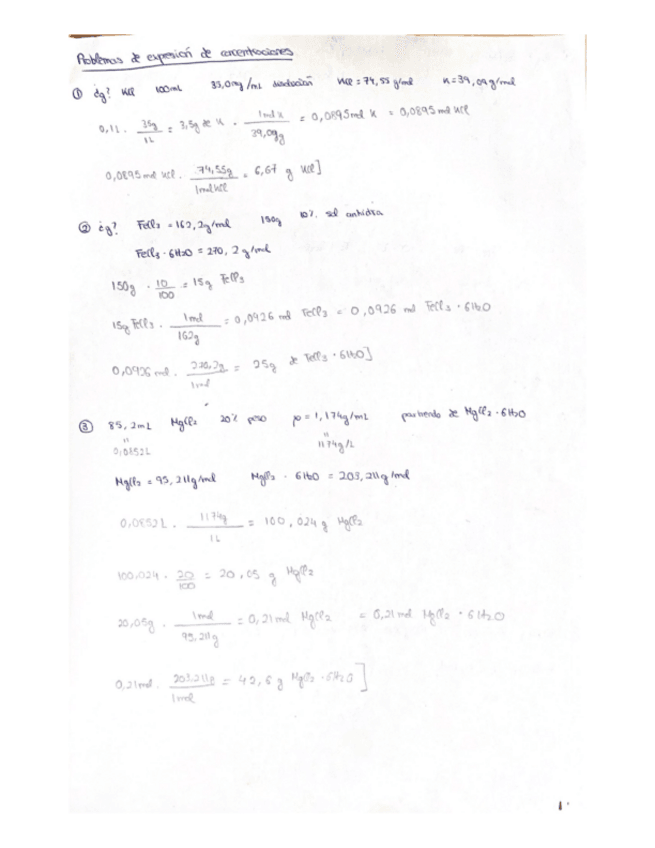 Problemas de expresión de concentraciones
① ¿g? KCl 100mL 35,0mg/mL disolución KCl = 74,55 g/mol K = 39,09 g/mol
0,1L · 35g/1L = 3,5g de K · 1mol K/39,09g = 0,0895 mol K = 0,0895 mol KCl
0,0895 mol KCl · 74,55g/1mol KCl = 6,67 g KCl]
② ¿g? FeCl₃ = 162,2g/mol 150g 10% sal anhidra
FeCl₃ · 6H₂O = 270,2 g/mol
150g · 10/100 = 15g FeCl₃
15g FeCl₃ · 1mol/162g = 0,0926 mol FeCl₃ = 0,0926 mol FeCl₃ · 6H₂O
0,0926 mol · 270,2g/1mol = 25g de FeCl₃ · 6H₂O]
③ 85,2mL MgCl₂ 20% peso ρ = 1,174g/mL partiendo de MgCl₂ · 6H₂O
" "
0,0852L 1174g/L
MgCl₂ = 95,211g/mol MgCl₂ · 6H₂O = 203,211g/mol
0,0852L · 1174g/1L = 100,024 g MgCl₂
100,024 · 20/100 = 20,05 g MgCl₂
20,05g · 1mol/95,211g = 0,21mol MgCl₂ = 0,21mol MgCl₂ · 6H₂O
0,21mol · 203,211g/1mol = 42,6 g MgCl₂ · 6H₂O]
1